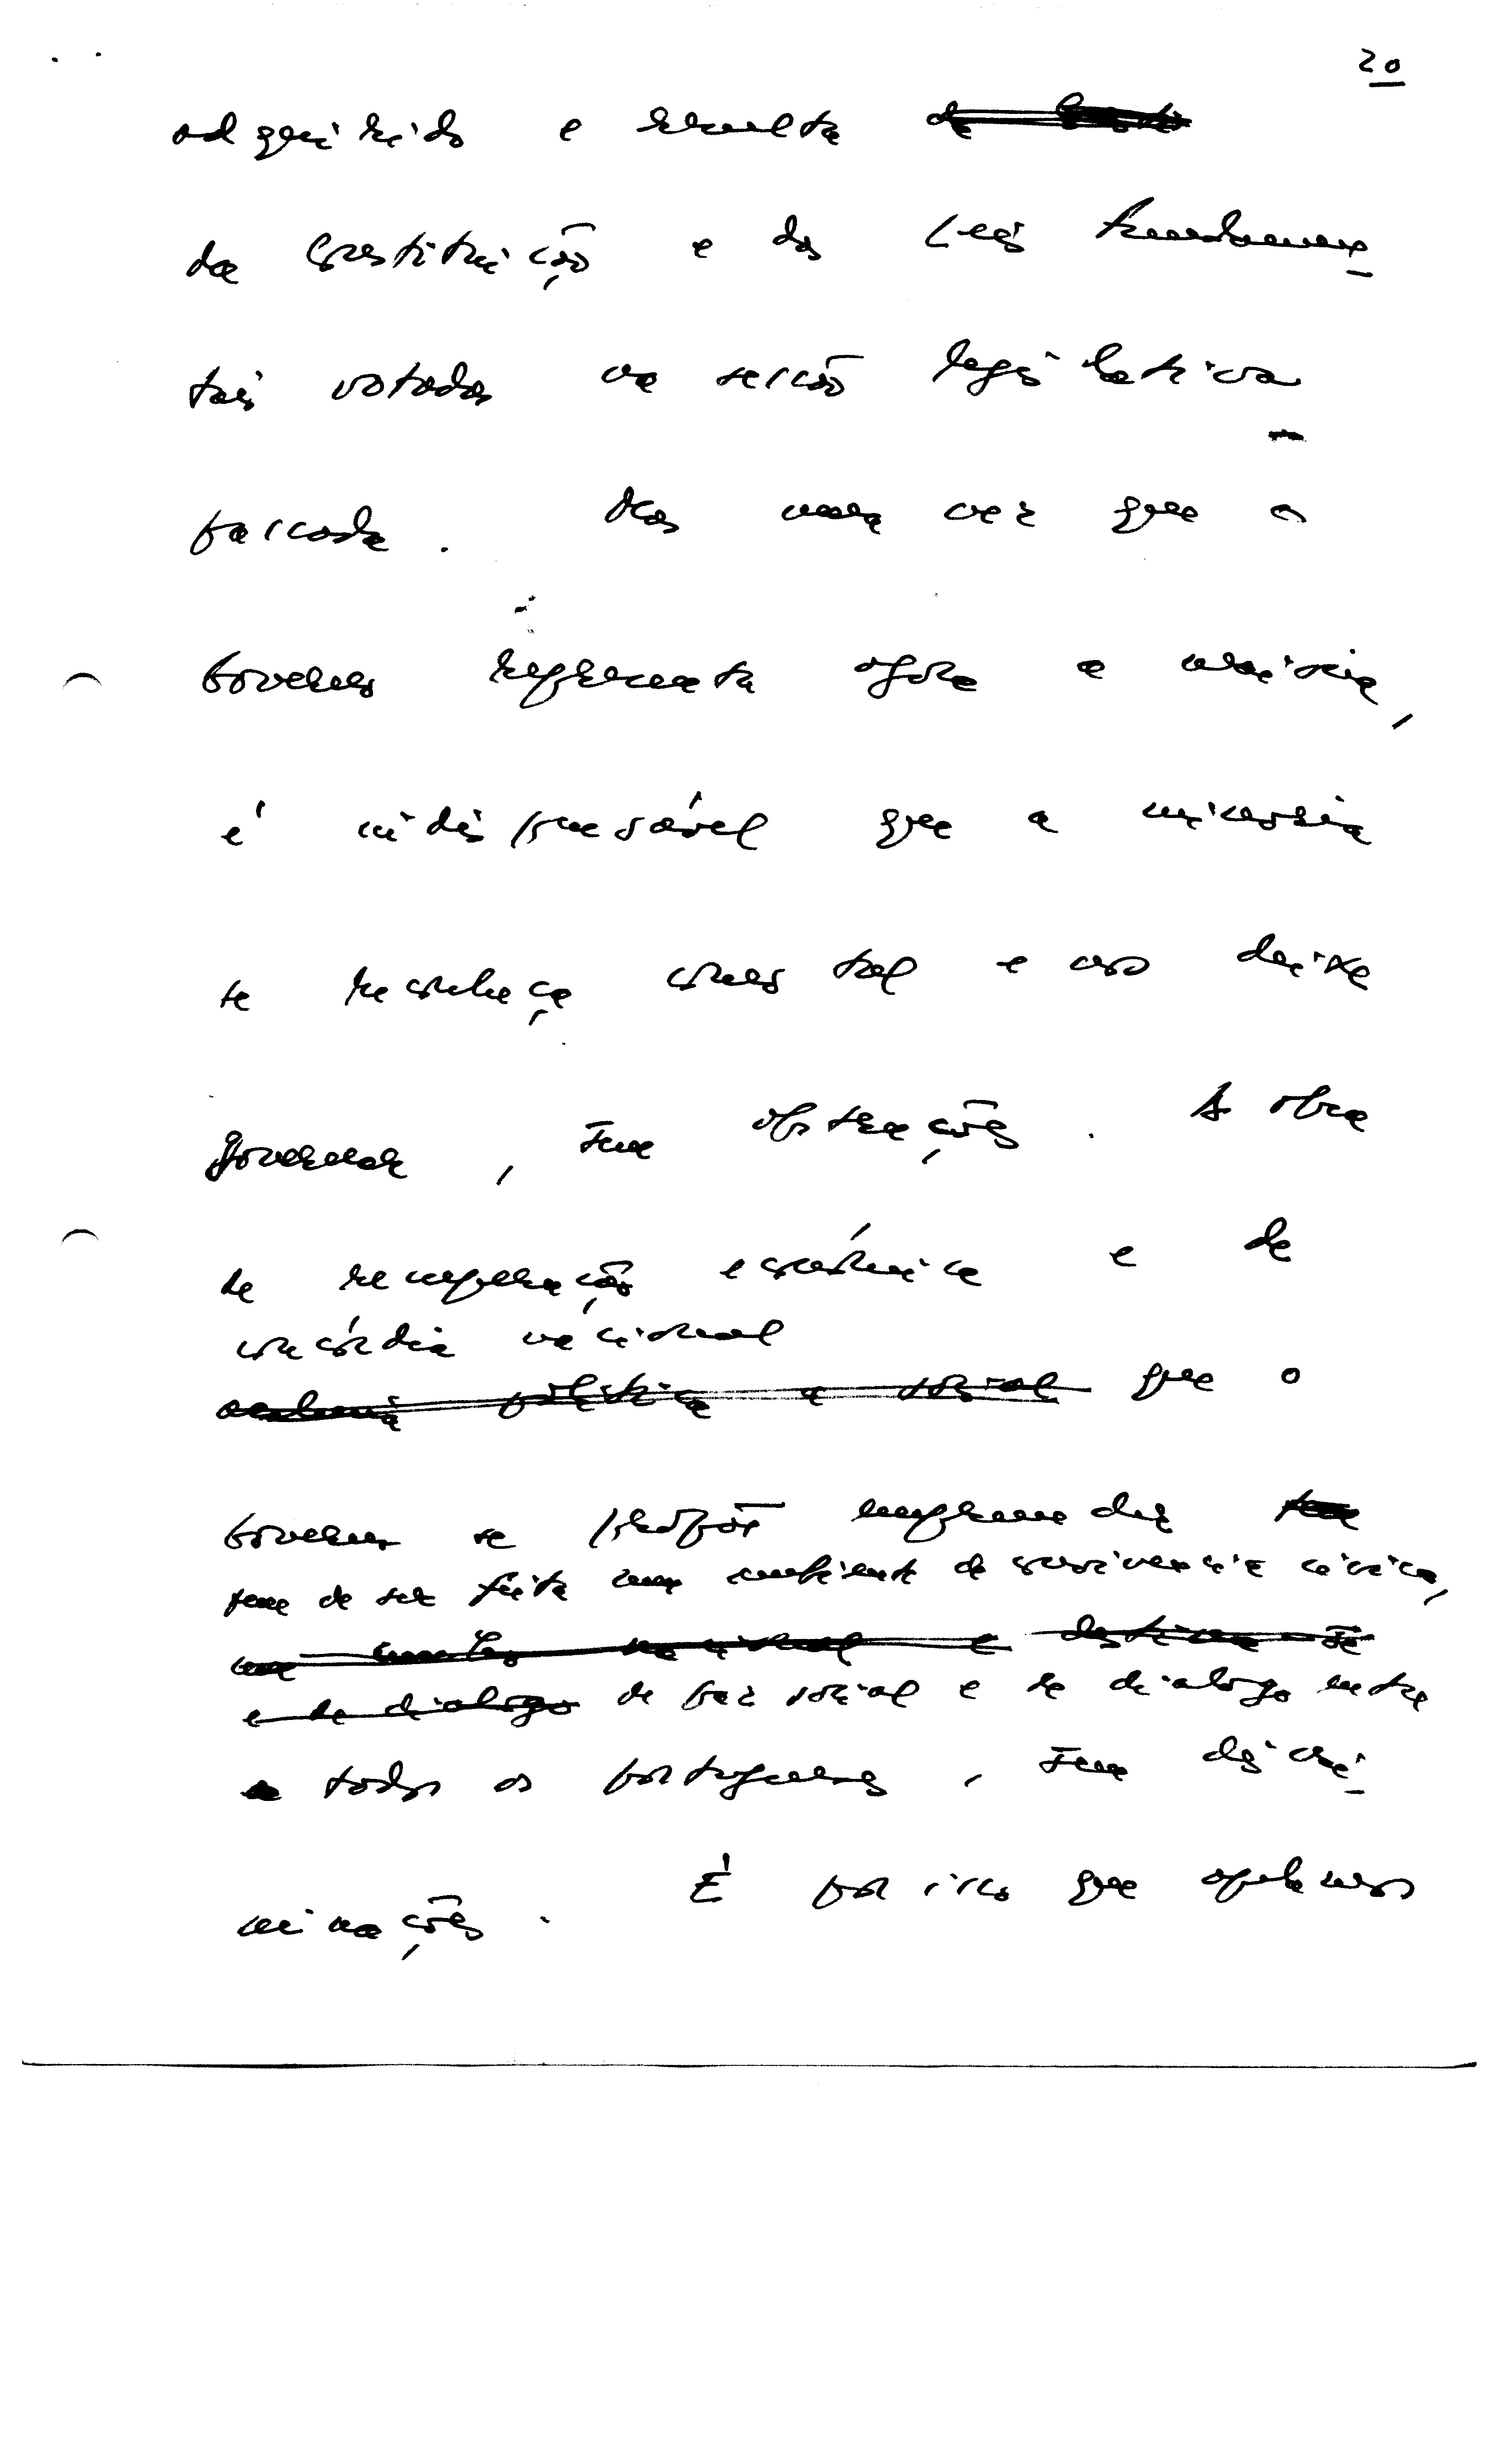 20
adquirido e resulta de
da Constituição e das Leis Fundamen-
tais votadas na sessão legislativa
passada. Mas uma vez que o
Governo representa agora a maioria,
é indispensável que a minoria
se reconheça como tal e nos deixe
governar, sem obstruções. A obra
de recuperação económica e de
concórdia nacional
academia política e social que o
Governo se propõe empreender tem
tem de ser feita num ambiente de convivência cívica,
nacional e destina-se
e de dialogo de paz social e de dialogo entre
a todos os portugueses, sem discri-
minações. É por isso que apelamos